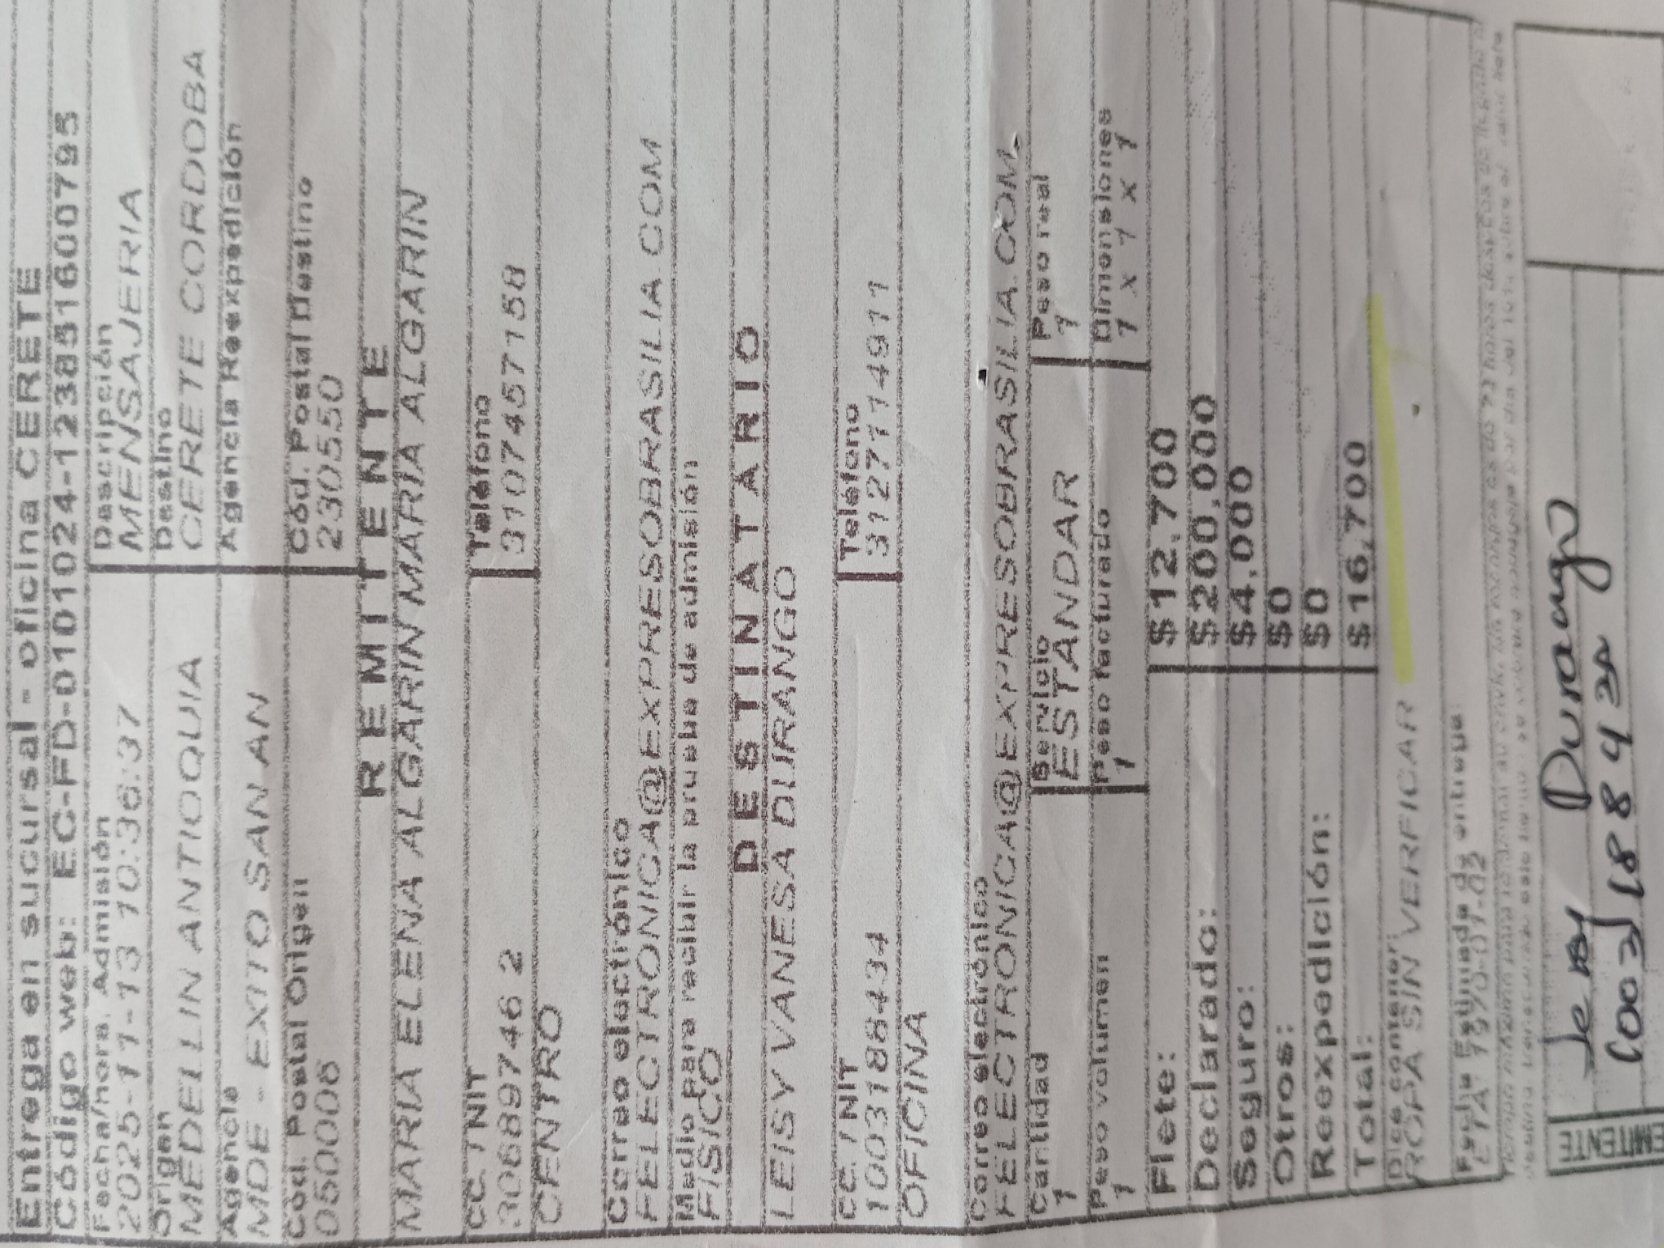 Entrega en sucursal - oficina CERETE
Código web: EC-FD-0101024-123851600795
Fecha/hora. Admisión Descripción
2025-11-13 10:36:37 MENSAJERIA
Origen Destino
MEDELLIN ANTIOQUIA CERETE CORDOBA
Agencia Agencia Reexpedición
MDE - EXITO SAN AN
Cód. Postal Origen Cód. Postal Destino
050006 230550
REMITENTE
MARIA ELENA ALGARIN MARIA ALGARIN
CC. / NIT Teléfono
30689746 2 3107457158
CENTRO
Correo electrónico
FELECTRONICA@EXPRESOBRASILIA COM
Medio para recibir la prueba de admisión
FISICO
DESTINATARIO
LEISY VANESA DURANGO
CC. / NIT Teléfono
1003188434 3127714911
OFICINA
Correo electrónico
FELECTRONICA@EXPRESOBRASILIA.COM.
Cantidad Servicio Peso real
1 ESTANDAR 1
Peso volumen Peso facturado Dimensiones
1 1 1 x 1 x 1
Flete: $12,700
Declarado: $200,000
Seguro: $4,000
Otros: $0
Reexpedición: $0
Total: $16,700
Dice contener:
ROPA SIN VERFICAR
Fecha Estimada de entrega:
ETA: 1970-01-02
Durango
EMITENTE